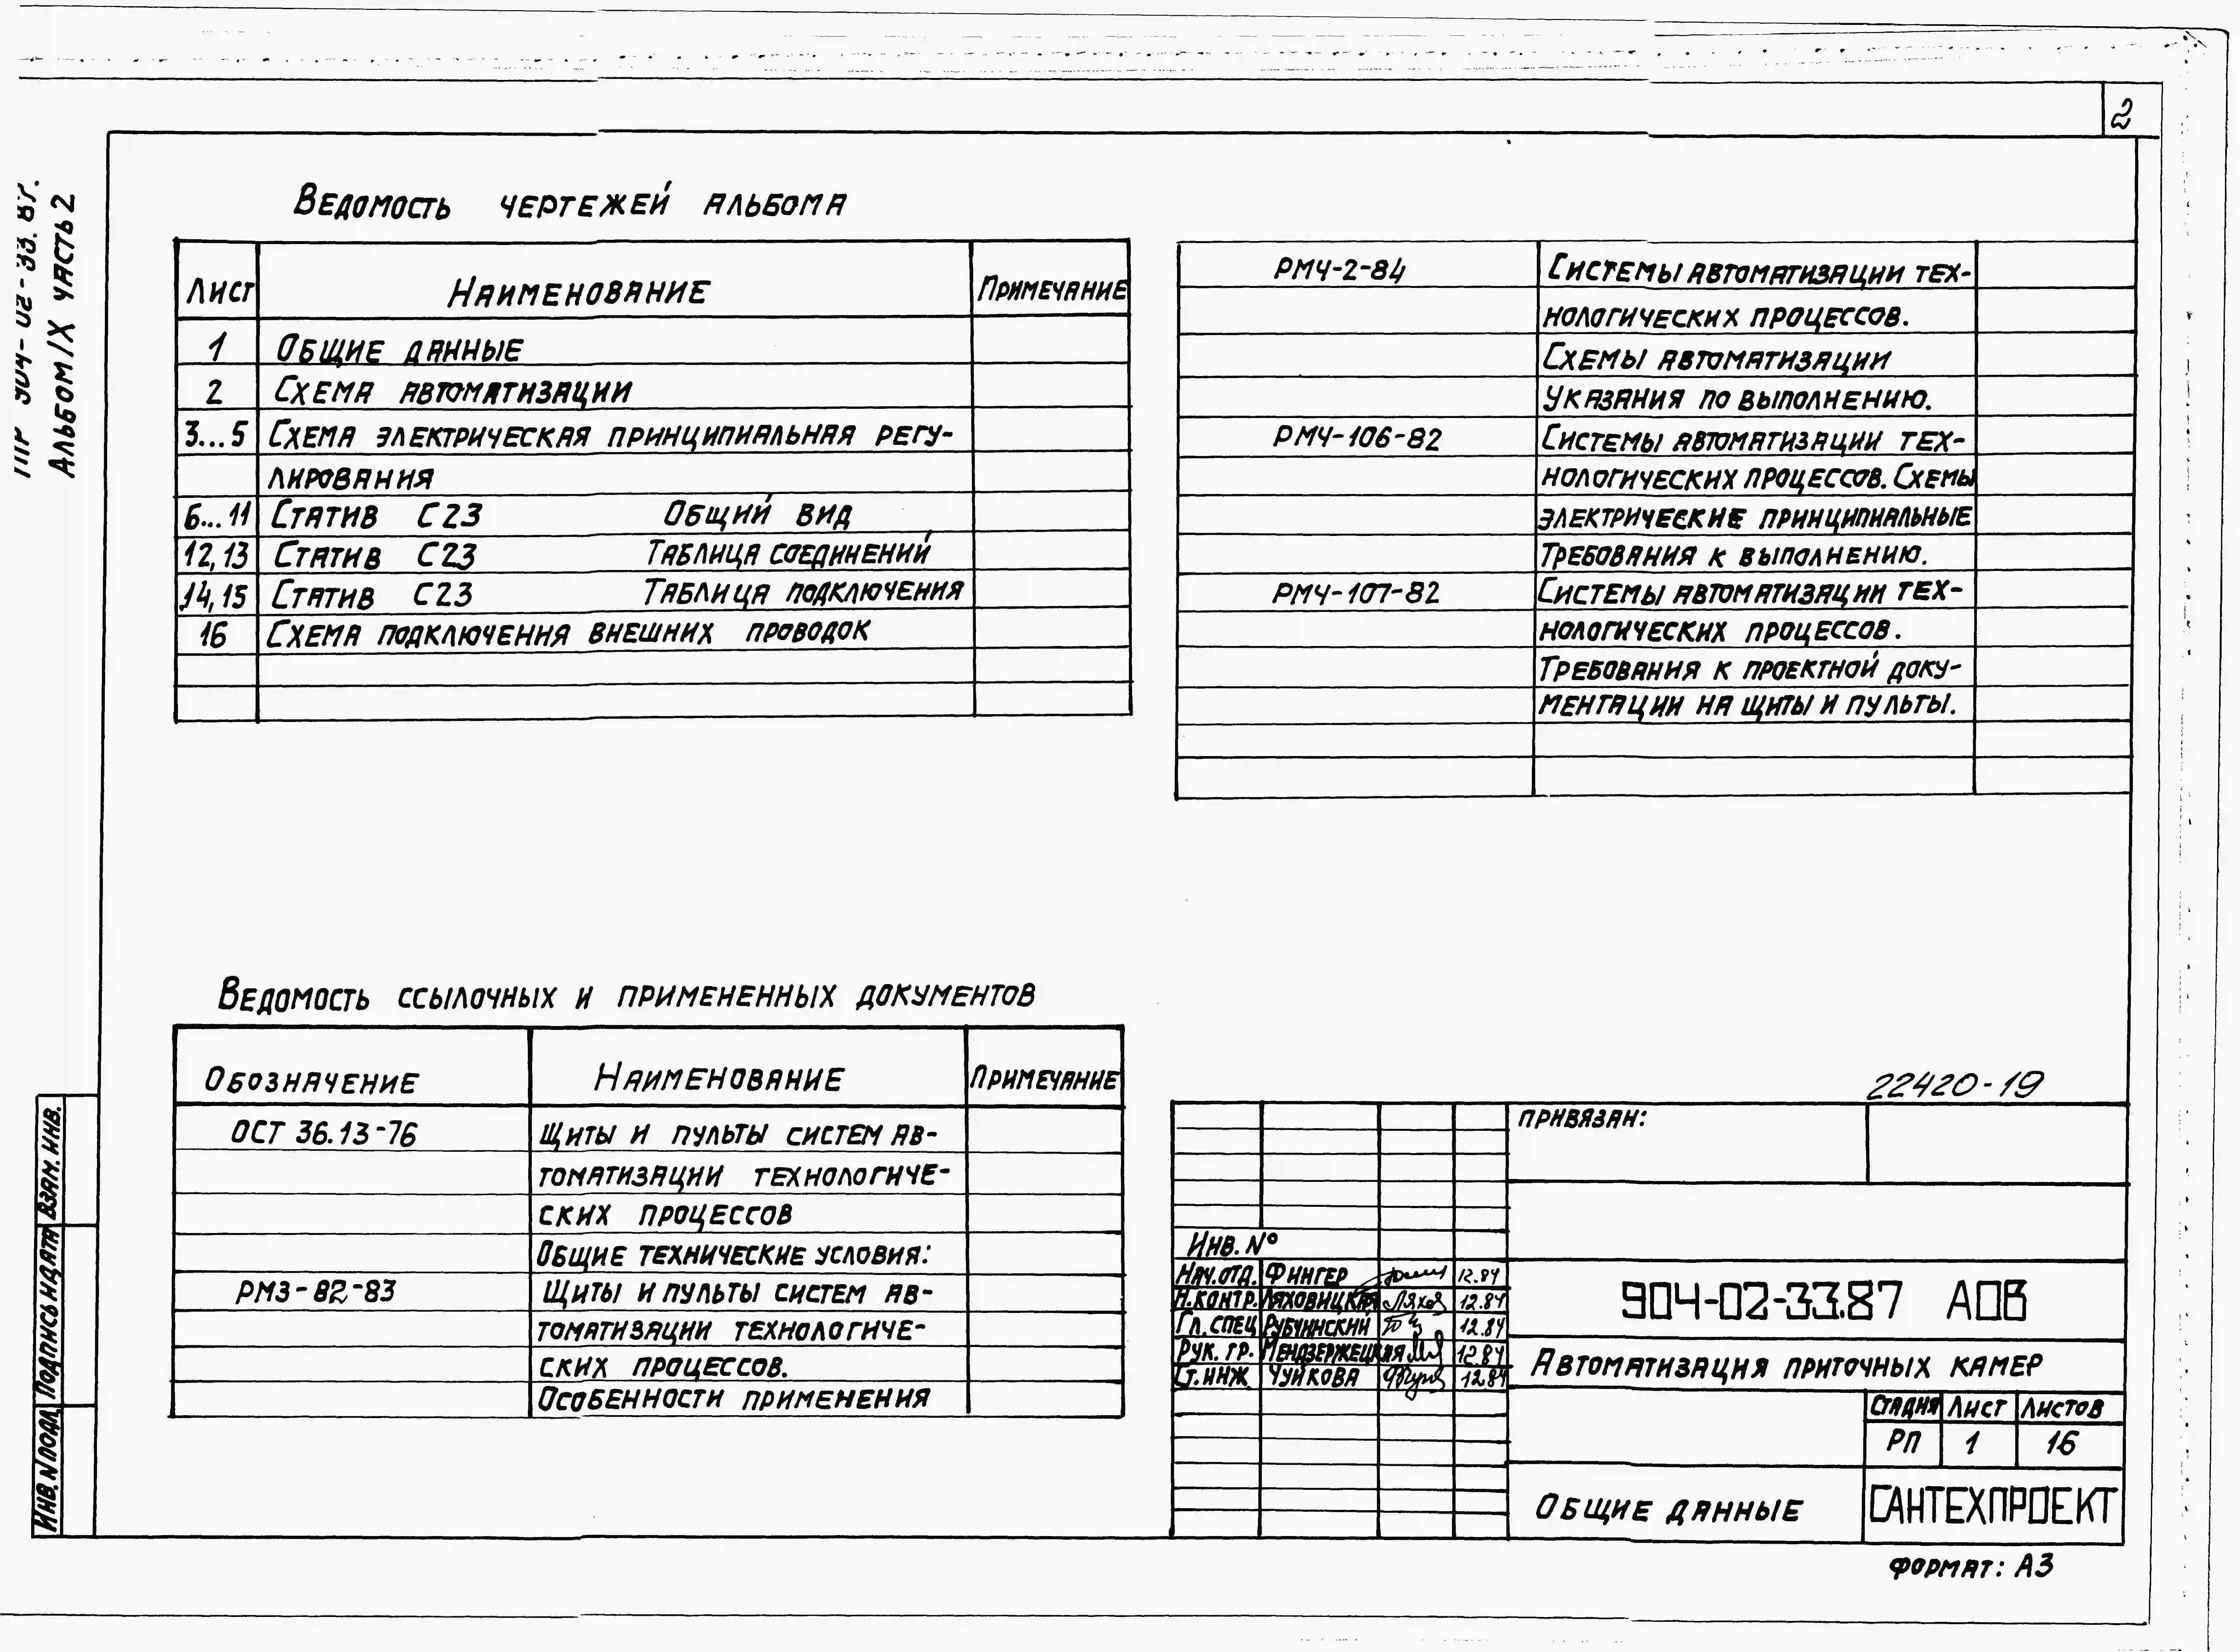 2
904-02-33.87.
Альбом IX часть 2
Ведомость чертежей альбома
Лист Наименование Примечание
1 Общие данные
2 Схема автоматизации
3...5 Схема электрическая принципиальная регу-
лирования
6...11 Статив С23 Общий вид
12,13 Статив С23 Таблица соединений
14,15 Статив С23 Таблица подключения
16 Схема подключения внешних проводок
РМ4-2-84 Системы автоматизации тех-
нологических процессов.
Схемы автоматизации
Указания по выполнению.
РМ4-106-82 Системы автоматизации тех-
нологических процессов. Схемы
электрические принципиальные
Требования к выполнению.
РМ4-107-82 Системы автоматизации тех-
нологических процессов.
Требования к проектной доку-
ментации на щиты и пульты.
Ведомость ссылочных и примененных документов
Обозначение Наименование Примечание
ОСТ 36.13-76 Щиты и пульты систем ав-
томатизации технологиче-
ских процессов
Общие технические условия:
РМ3-82-83 Щиты и пульты систем ав-
томатизации технологиче-
ских процессов.
Особенности применения
22420-19
Привязан:
Инв. №
Нач.отд. Фингер 12.84
Н.контр. Ляховицкая 12.84
Гл. спец Рубчинский 12.84
Рук. гр. Мендзержецкая 12.84
Ст. инж Чуйкова 12.84
904-02-33.87 АОВ
Автоматизация приточных камер
Стадия Лист Листов
РП 1 16
Общие данные
САНТЕХПРОЕКТ
Формат: А3
Взам. инв.
Подпись и дата
Инв. N подл